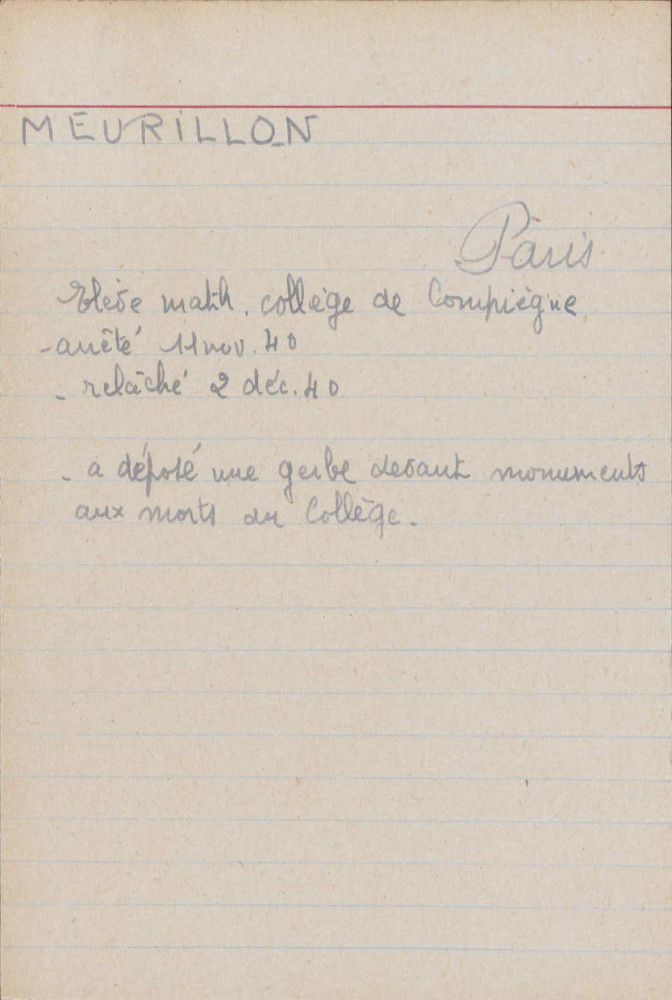 MEURILLON
Paris
Elève math. collège de Compiègne
- arrêté 11 nov. 40
- relâché 2 déc. 40
- a déposé une gerbe devant monuments
aux morts du Collège.